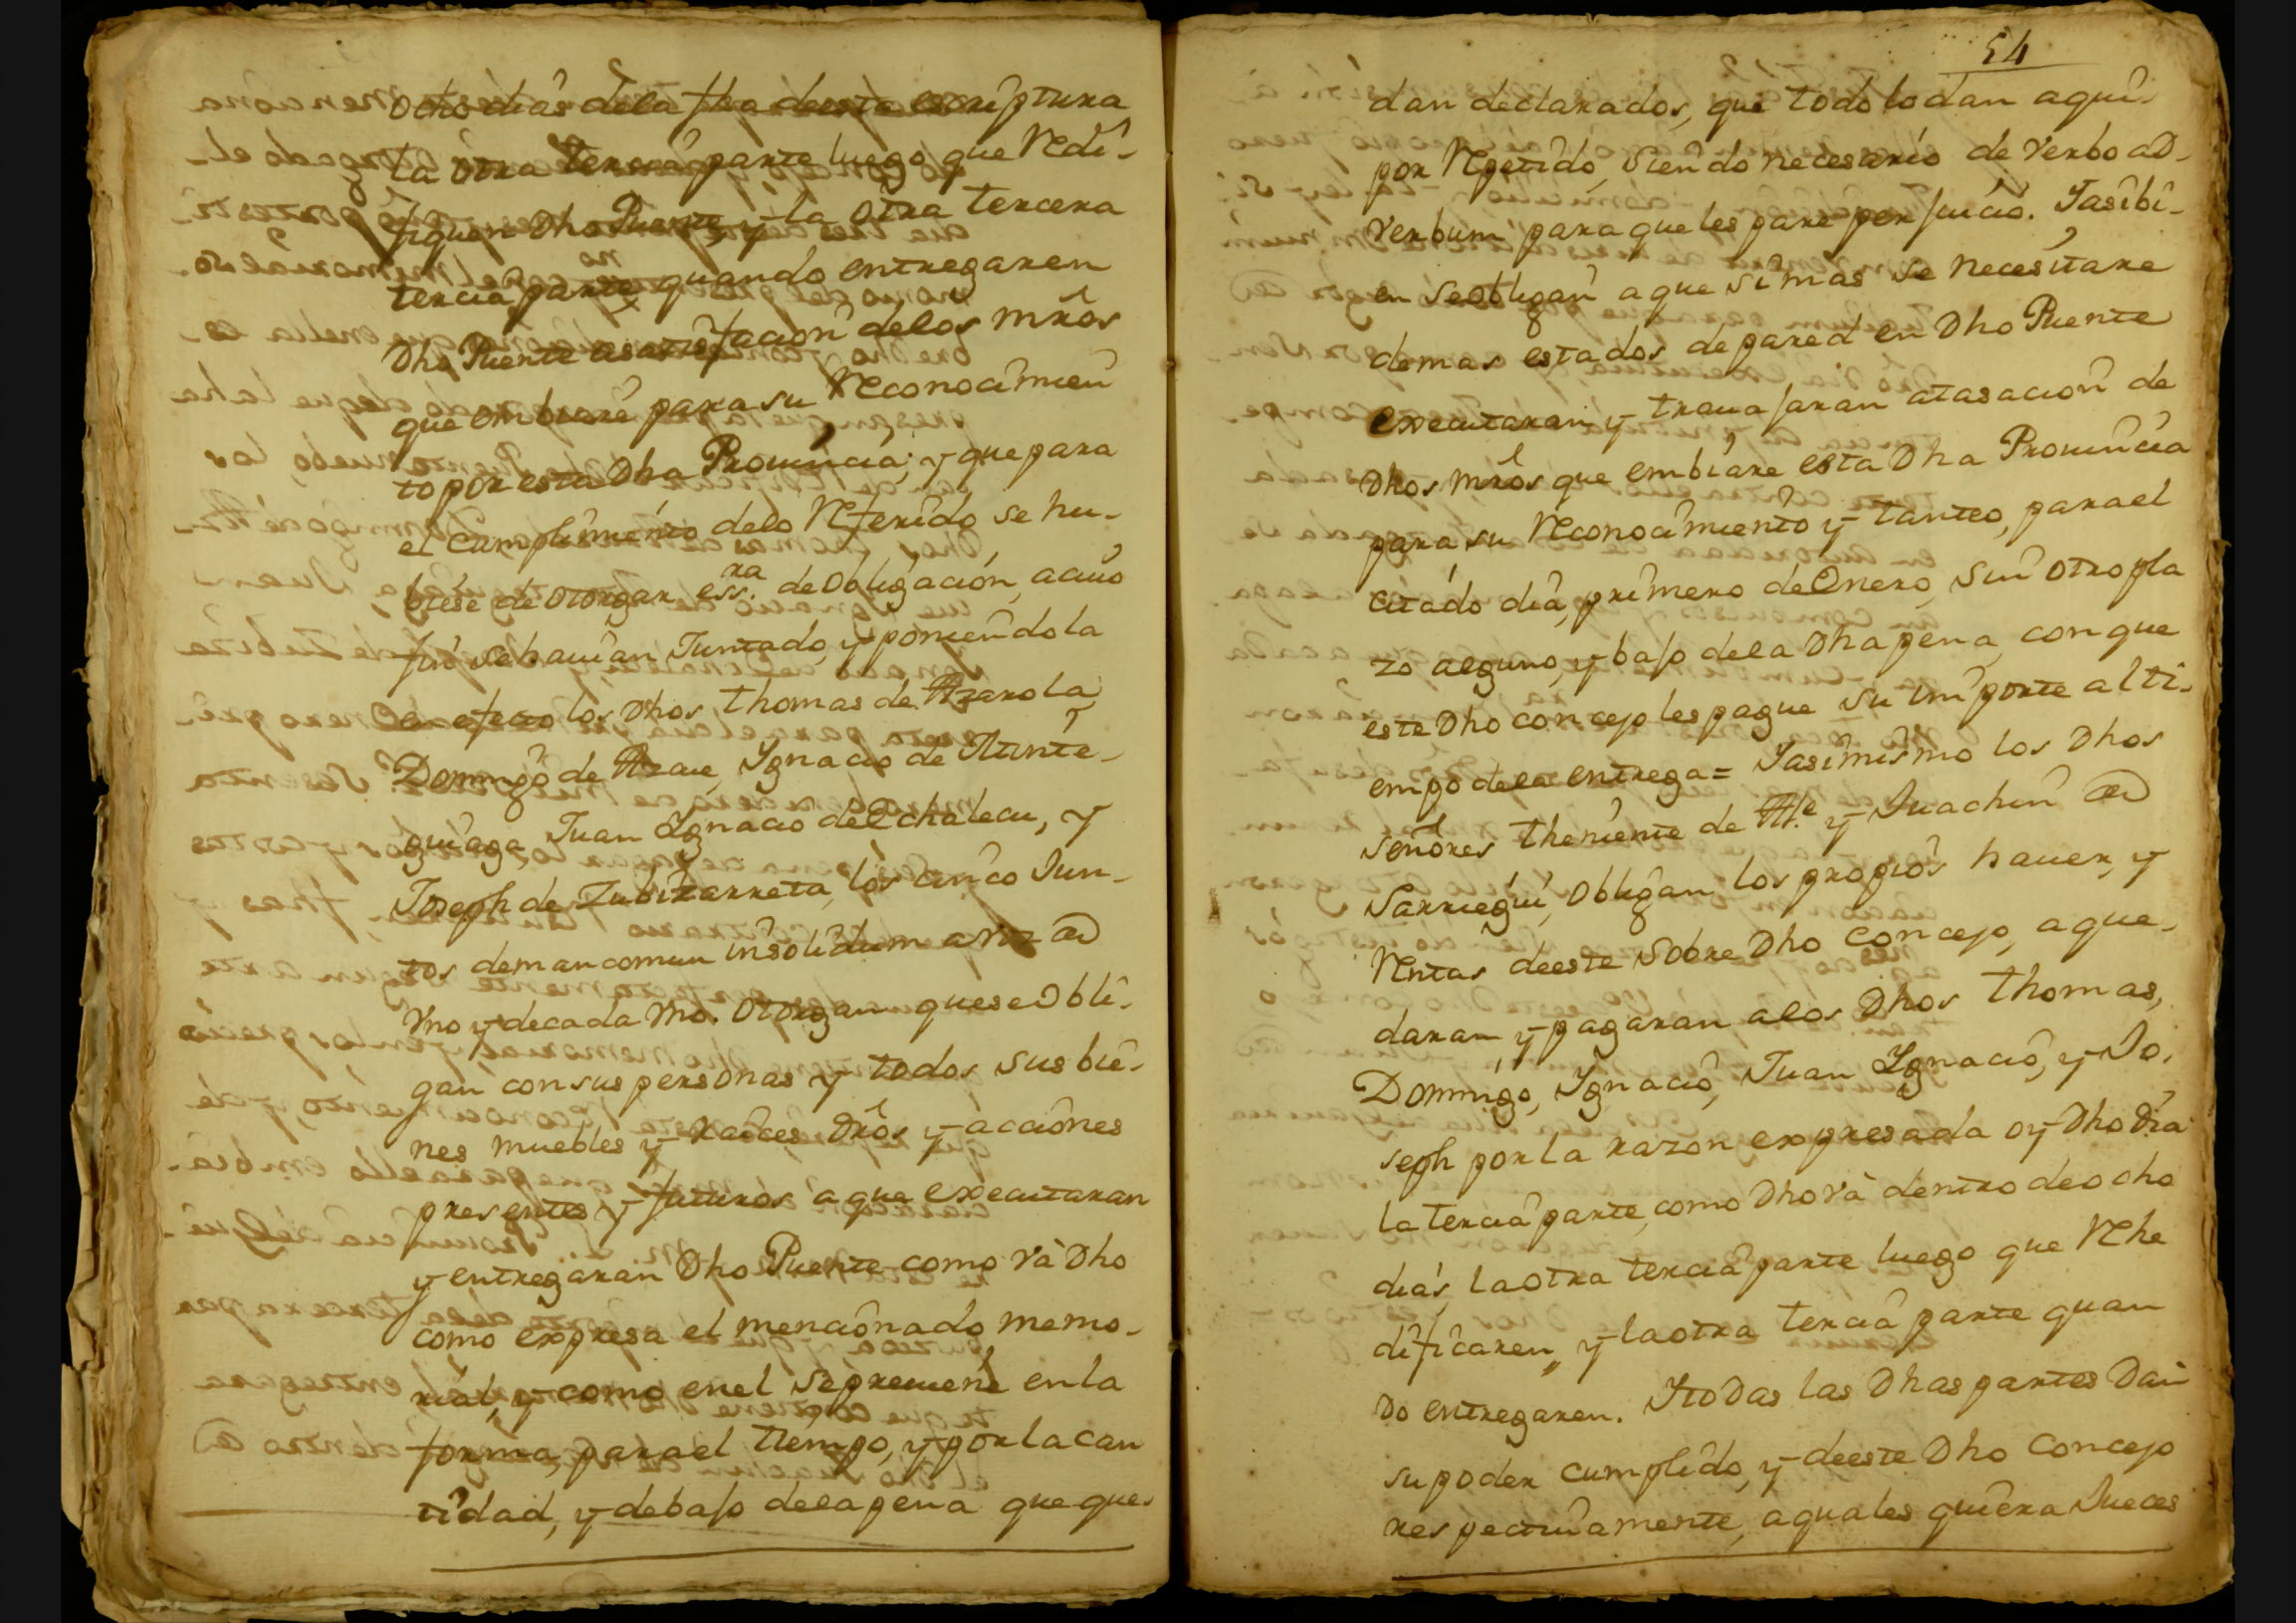 ocho dias dela fha deesta escriptura
la otra tercia parte luego que Redi-
fiquen Dho Puente, y la otra tercera
tercia parte quando entregaren
Dho Puente asatisfacion delos mros
que embiare para su Reconocimien
to por esta Dha Prouincia; y que para
el cumplimiento delo Referido se hu-
biese de otorgar essra. de obligacion, acuio
fin se hauian Juntado, y poniendola
en efecto los Dhos Thomas de Azarola
Domingo de Azcue, Ygnacio de Ytunte-
guiaga, Juan Ygnacio de Echalecu, y
Joseph de Zubizarreta, los cinco Jun-
tos demancomun insolidum a voz de
Vno y decada Vno. Otorgan que se obli-
gan con sus personas y todos sus bie-
nes muebles y raices Dros y acciones
presentes y futuros a que executaran
y entregaran Dho Puente como và Dho
como expresa el mencionado memo-
rial, y como enel se preuiene en la
forma, para el tiempo, y por la can
tidad, y debajo dela pena que que-
54
dan declarados, que todo lo dan aqui
por Repetido, siendo necesario de verbo ad-
verbum para que les pare perjuicio. Yasibi-
en se obligan a que si mas se necesitare
demas estados de pared en Dho Puente
executaran y trauajaran atasacion de
Dhos mros que embiare esta Dha Prouincia
para su Reconocimiento y tanteo, para el
citado dia, primero de Enero, sin otro pla
zo alguno, y bajo dela Dha pena, con que
este Dho concejo les pague su importe al ti-
empo dela entrega = Yasimismo los Dhos
señores Theniente de Alle y Juachin de
Sarriegui, obligan los propios hauer, y
Rentas deeste sobre Dho concejo, a que
daran, y pagaran alos Dhos Thomas,
Domingo, Ygnacio, Juan Ygnacio, y Jo-
seph por la razon expresada oy Dho dia
la tercia parte, como Dho và dentro de ocho
dias, la otra tercia parte luego que Rehe
dificaren, y la otra tercia parte quan
do entregaren. Y todas las Dhas partes Dan
su poder cumplido, y deeste Dho concejo
respectiuamente, a quales quiera Jueces